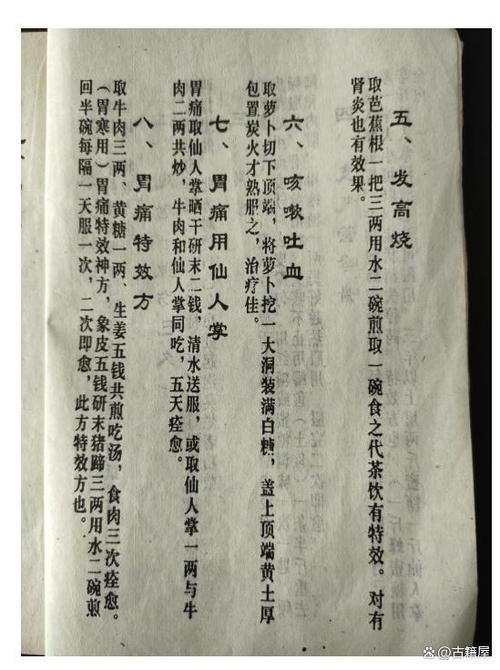 五、发高烧
取芭蕉根一把三两用水二碗煎取一碗食之代茶饮有特效。对有
肾炎也有效果。
六、咳嗽吐血
取萝卜切下顶端，将萝卜挖一大洞装满白糖，盖上顶端黄土厚
包置炭火才熟服之，治疗佳。
七、胃痛用仙人掌
胃痛取仙人掌晒干研末二钱，清水送服，或取仙人掌一两与牛
肉二两共炒，牛肉和仙人掌同吃，五天痊愈。
八、胃痛特效方
取牛肉三两、黄糖一两、生姜五钱共煎吃汤，食肉三次痊愈。
（胃寒用）胃痛特效神方，象皮五钱研末猪蹄三两用水二碗煎
回半碗每隔一天服一次，二次即愈，此方特效方也。
@古籍屋